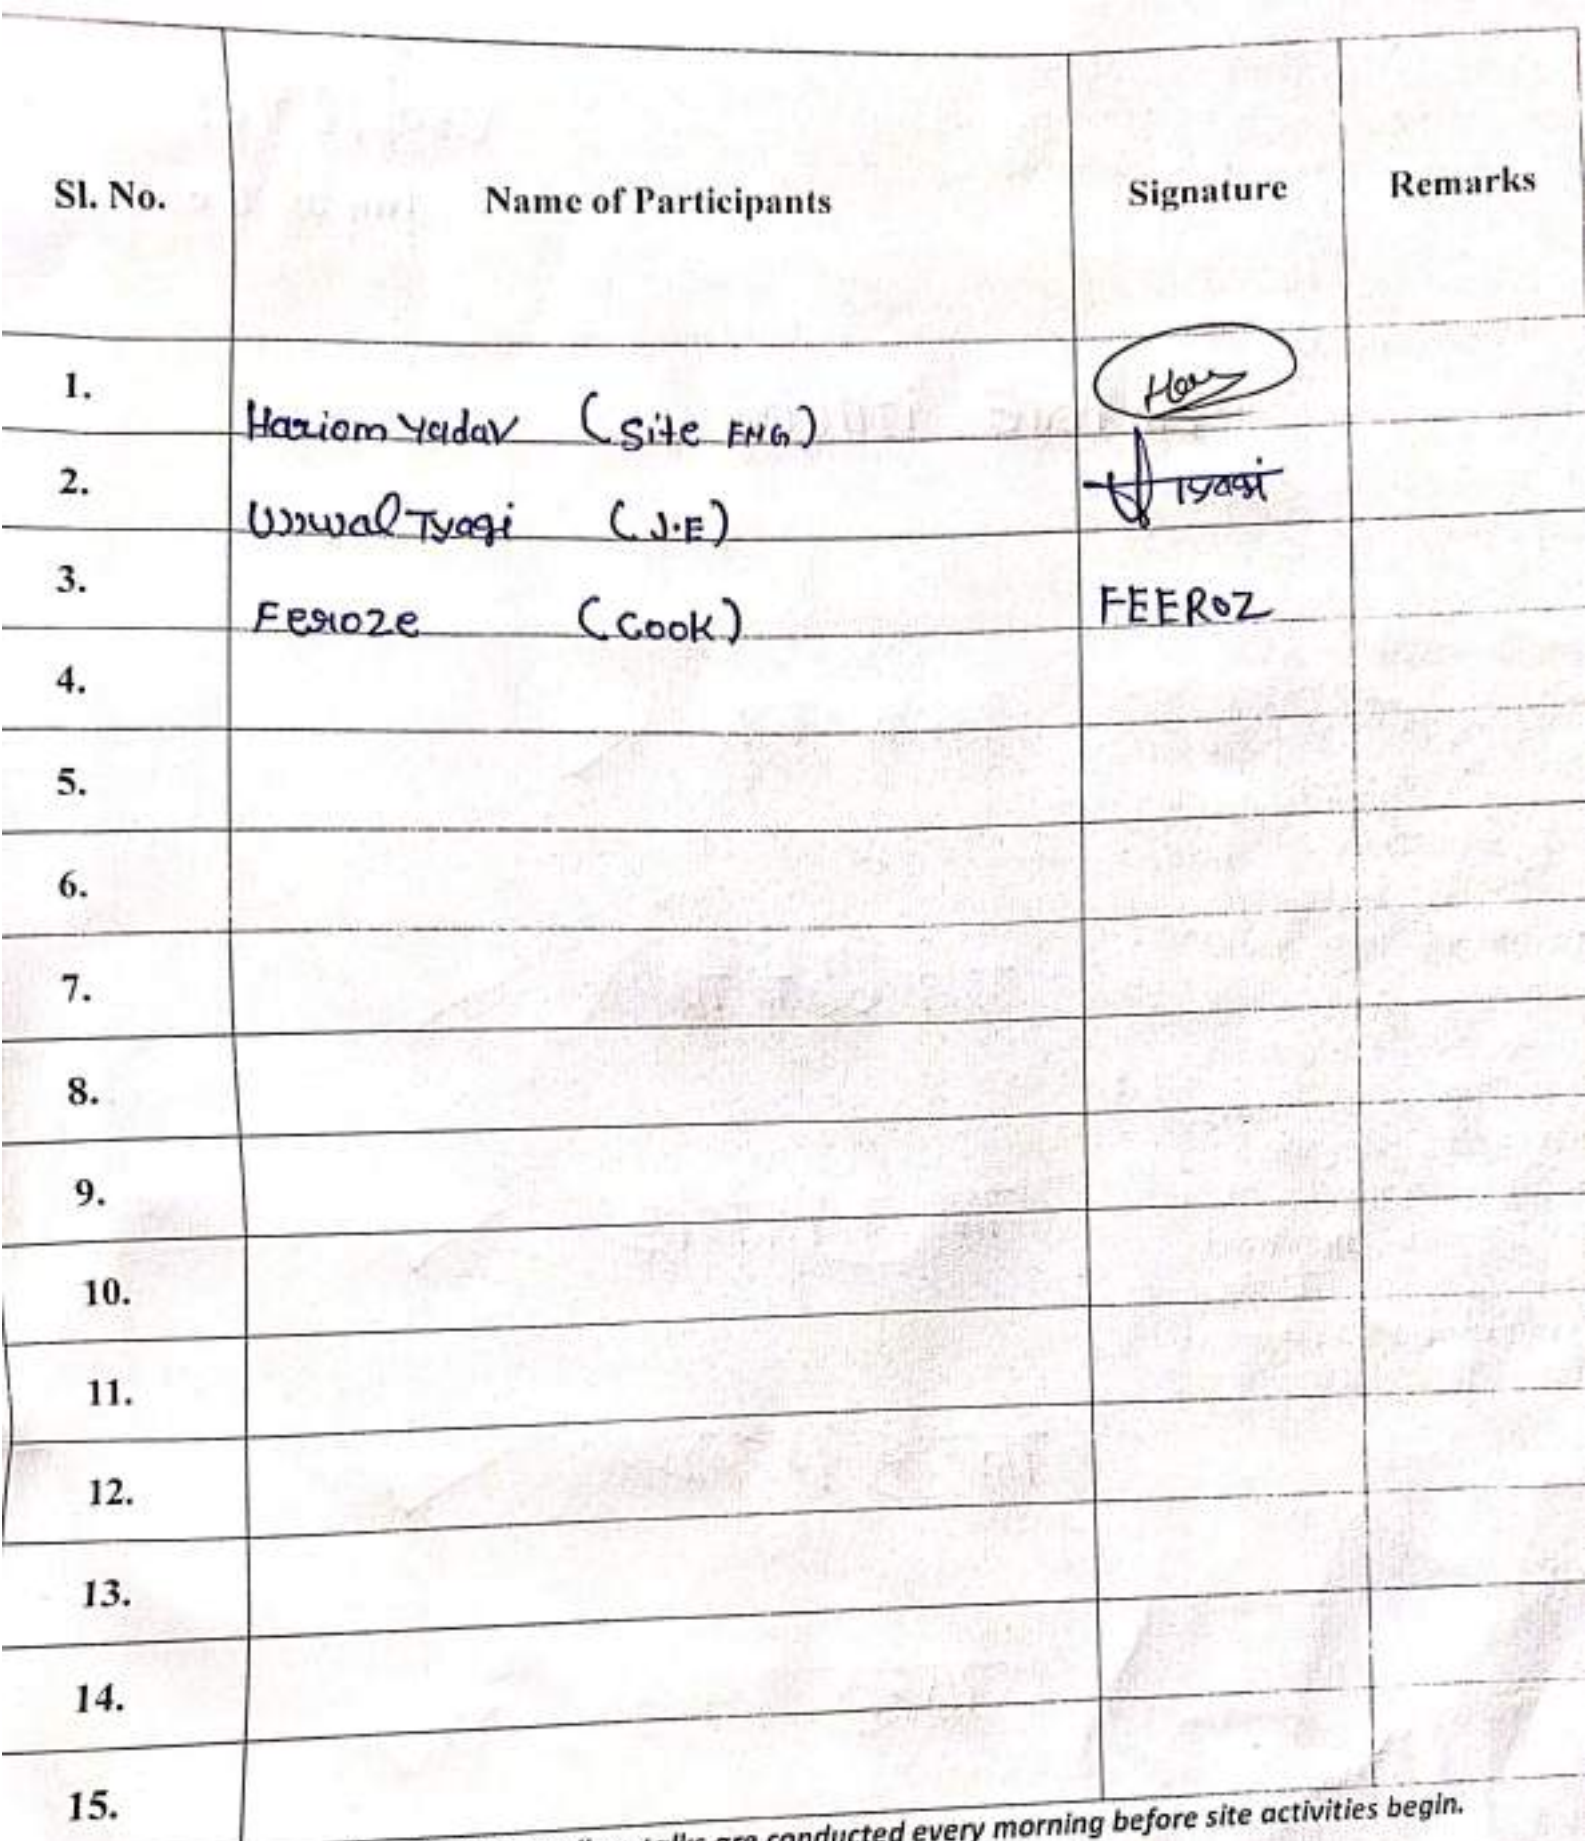 Sl. No. Name of Participants Signature Remarks
1. Hariom Yadav (Site ENG) Hari
2. Ujjwal Tyagi (J.E) Tyagi
3. Feroze (Cook) FEEROZ
4.
5.
6.
7.
8.
9.
10.
11.
12.
13.
14.
15.
are conducted every morning before site activities begin.